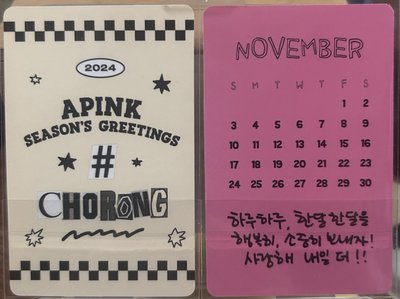 2024
APINK
SEASON'S GREETINGS
#
CHORONG
NOVEMBER
S M T W T F S
1 2
3 4 5 6 7 8 9
10 11 12 13 14 15 16
17 18 19 20 21 22 23
24 25 26 27 28 29 30
하루하루, 한달한달을
행복히, 소중히 보내자!
사랑해 내일 더!!